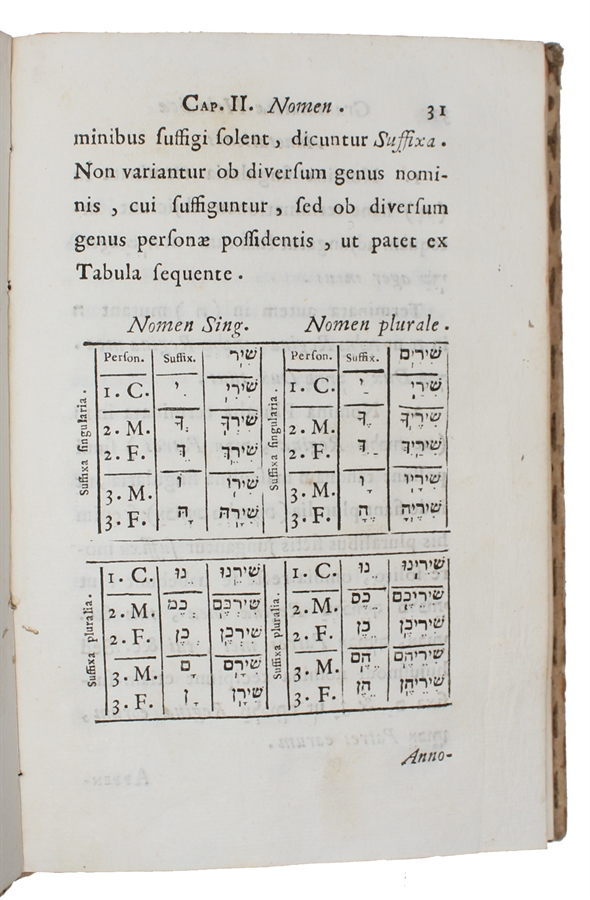 CAP. II. Nomen . 31
minibus ſuffigi ſolent, dicuntur Suffixa .
Non variantur ob diverſum genus nomi-
nis , cui ſuffiguntur , ſed ob diverſum
genus perſonæ poſſidentis , ut patet ex
Tabula ſequente .
Nomen Sing. Nomen plurale .
Suffixa ſingularia .
Perſon. Suffix. שִׁיר
1. C. ִי שִׁירִי
2. M. ְךָ שִׁירְךָ
2. F. ֵךְ שִׁירֵךְ
3. M. וֹ שִׁירוֹ
3. F. ָהּ שִׁירָהּ
Suffixa ſingularia .
Perſon. Suffix. שִׁירִים
1. C. ַי שִׁירַי
2. M. ֶיךָ שִׁירֶיךָ
2. F. שִׁירַיִךְ
3. M. שִׁירָיו
3. F. שִׁירֶיהָ
Suffixa pluralia .
1. C. ֵנוּ שִׁירֵנוּ
2. M. שִׁירְכֶם
2. F. ְכֶן שִׁירְכֶן
3. M. ָם שִׁירָם
3. F. ָן שִׁירָן
Suffixa pluralia .
1. C. ֵנוּ שִׁירֵינוּ
2. M. כֶם שִׁירֵיכֶם
2. F. כֶן שִׁירֵיכֶן
3. M. הֶם שִׁירֵיהֶם
3. F. הֶן שִׁירֵיהֶן
Anno-